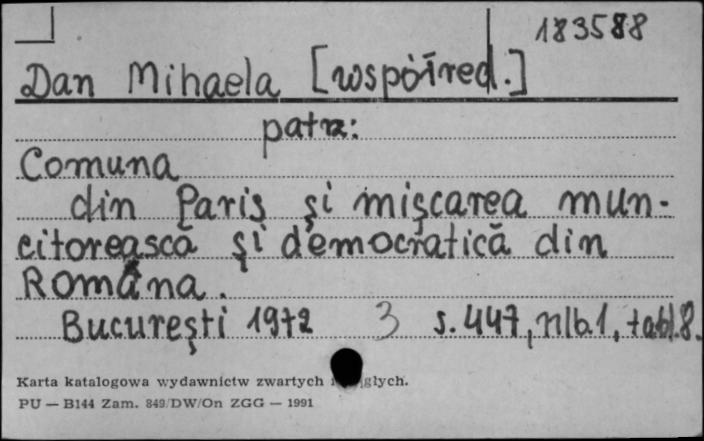 183588
Dan Mihaela [współred.]
patrz:
Comuna
din Paris și mișcarea mun-
citorească și democratică din
Româna.
București 1972 3 s. 447, nlb. 1, tabl. 8.
Karta katalogowa wydawnictw zwartych
PU — B144 Zam. 849/DW/On ZGG — 1991